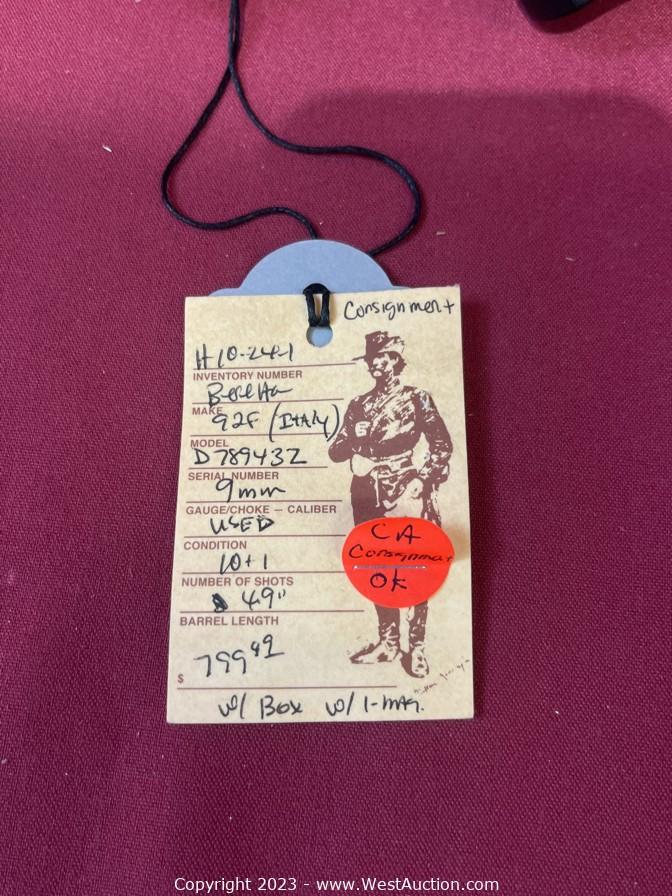 Consignment
H10-24-1
INVENTORY NUMBER
Beretta
MAKE
92F (ITALY)
MODEL
D78943Z
SERIAL NUMBER
9mm
GAUGE/CHOKE — CALIBER
USED
CONDITION
10+1
NUMBER OF SHOTS
4.9"
BARREL LENGTH
$ 799
w/ Box w/ 1-MAG.
CA
Consignment
OK
Copyright 2023 - www.WestAuction.com